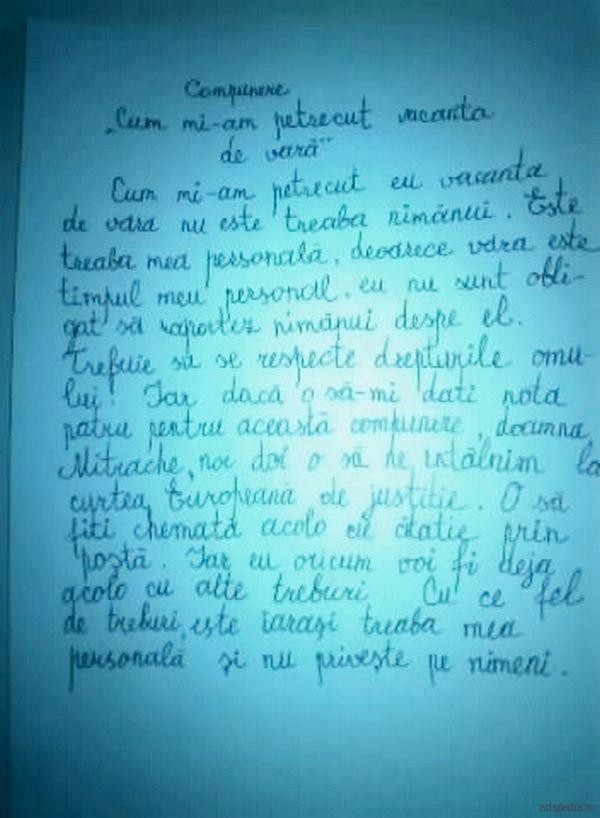 Compunere
„Cum mi-am petrecut vacanta
de vară"
Cum mi-am petrecut eu vacanta
de vara nu este treaba nimănui. Este
treaba mea personală, deoarece vara este
timpul meu personal. eu nu sunt obli-
gat să raportez nimănui despe el.
Trebuie să se respecte drepturile omu-
lui! Iar dacă o să-mi dati nota
patru pentru această compunere, doamna
Mitrache, noi doi o să ne intâlnim la
curtea Europeană de justitie. O să
fiti chemată acolo cu citatie prin
poștă. Iar eu oricum voi fi deja
acolo cu alte treburi Cu ce fel
de treburi, este iarași treaba mea
personală și nu privește pe nimeni.
adspedia.ro